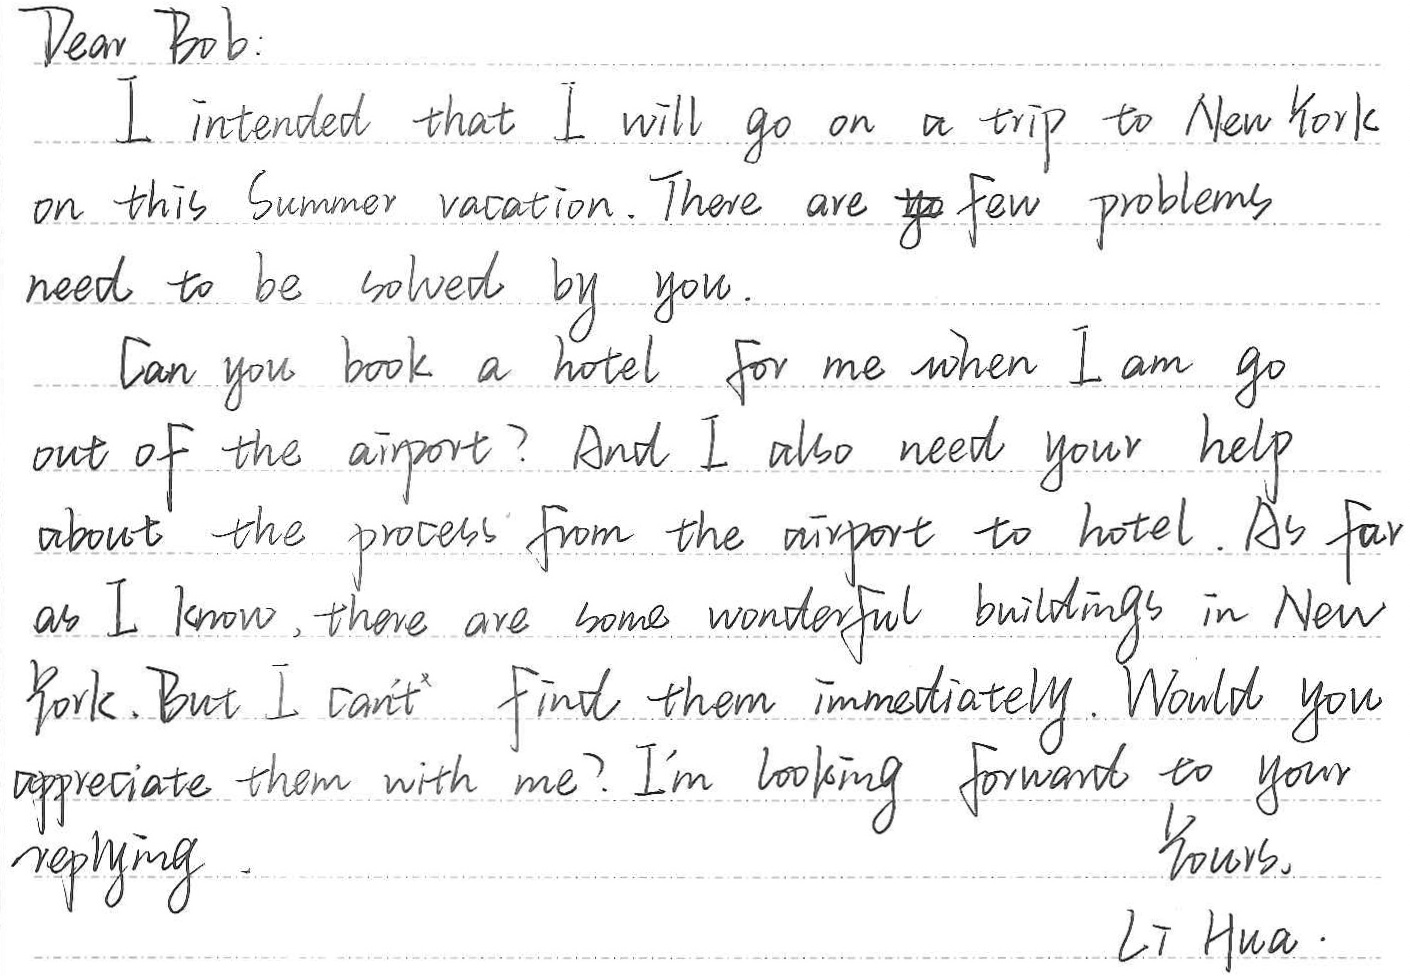 Dear Bob:
I intended that I will go on a trip to New York
on this Summer vacation. There are few problems
need to be solved by you.
Can you book a hotel for me when I am go
out of the airport? And I also need your help
about the process from the airport to hotel. As far
as I know, there are some wonderful buildings in New
York. But I can't find them immediately. Would you
appreciate them with me? I'm looking forward to your
replying.
Yours,
Li Hua.